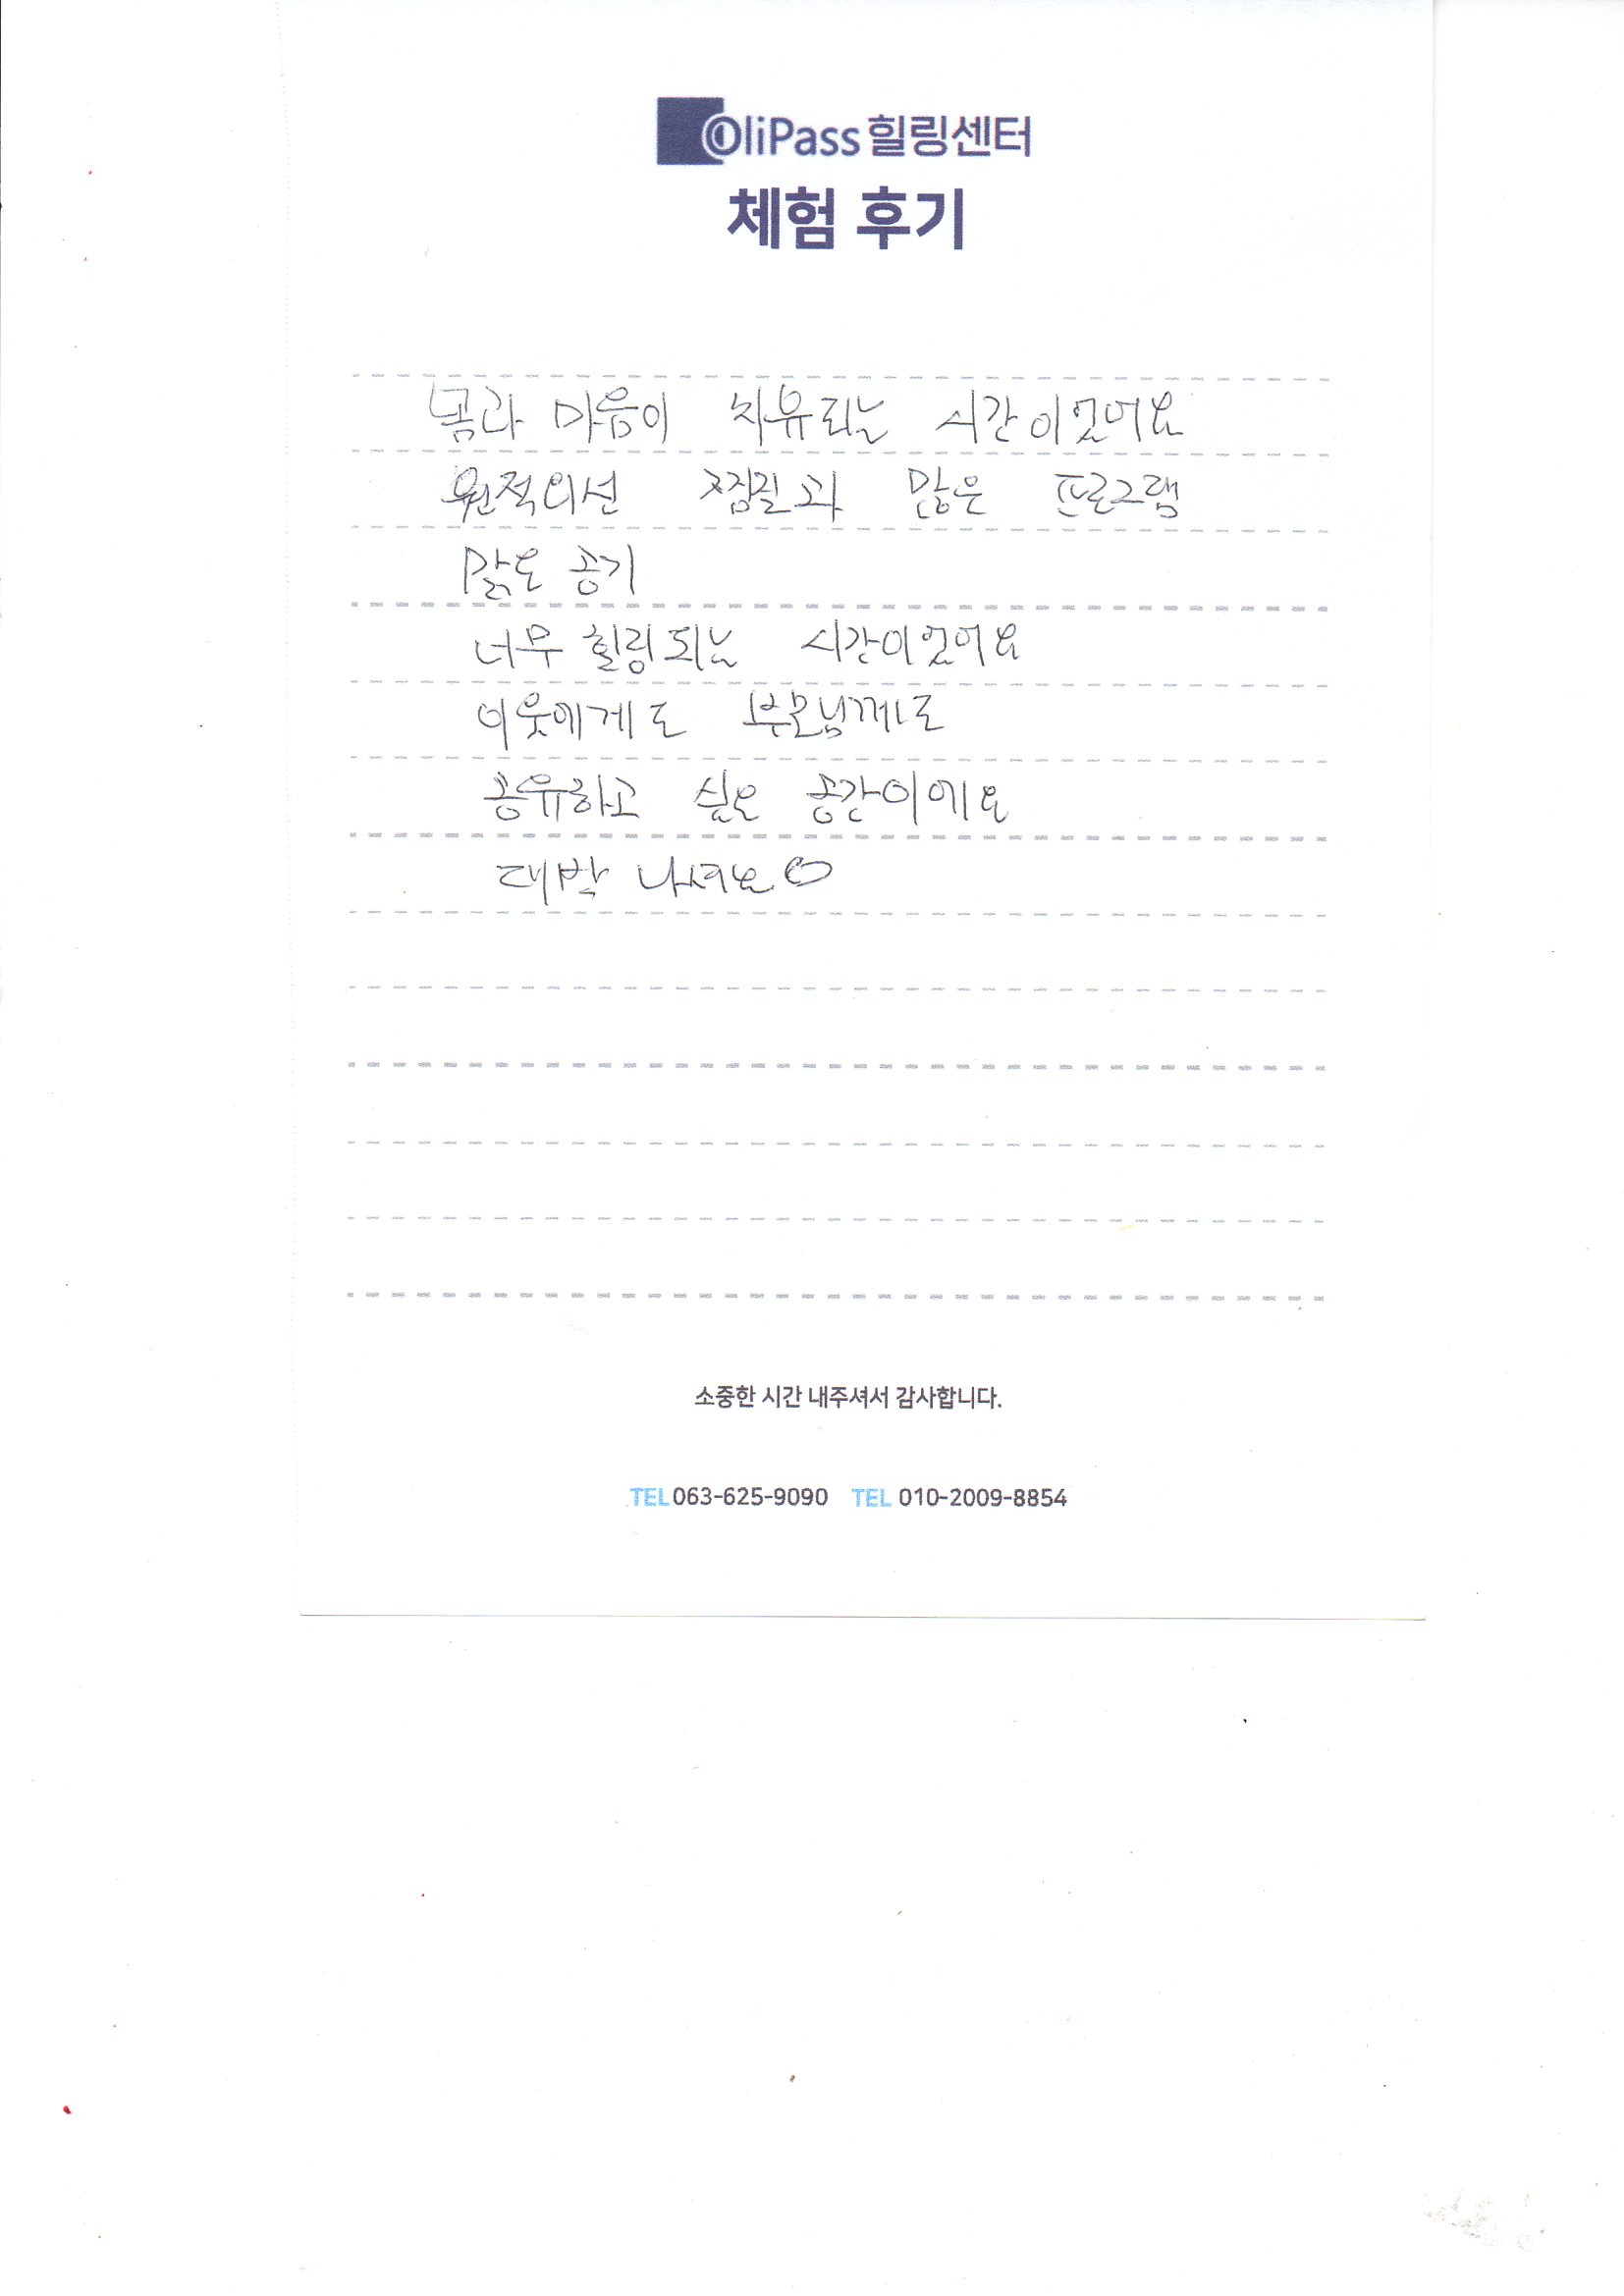 OliPass 힐링센터
체험 후기
몸과 마음이 치유되는 시간이었어요
원적외선 찜질과 많은 프로그램
맑은 공기
너무 힐링되는 시간이었어요
이웃에게도 부모님께도
공유하고 싶은 공간이에요
대박 나세요
소중한 시간 내주셔서 감사합니다.
TEL 063-625-9090 TEL 010-2009-8854